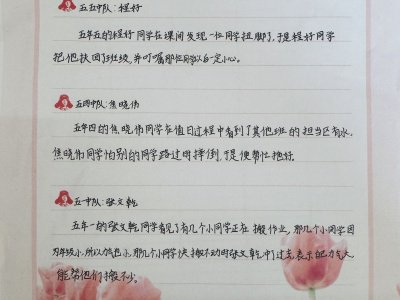 五五中队:程好
五年五的程好同学在课间发现一位同学扭脚了,于是程好同学
把他扶回了班级,并叮嘱那位同学以后一定小心。
五四中队:焦晓伟
五年四的焦晓伟同学在值日过程中看到了其他班的担当区有水,
焦晓伟同学怕别的同学路过时摔倒,于是便帮忙拖好
五一中队:张文乾
五年一的张文乾同学看见了有几个小同学正在搬作业,那几个小同学因
为年级小,所以个也小,那几个小同学快搬不动时张文乾冲了过去,表示自己力气大
能帮他们搬不少。